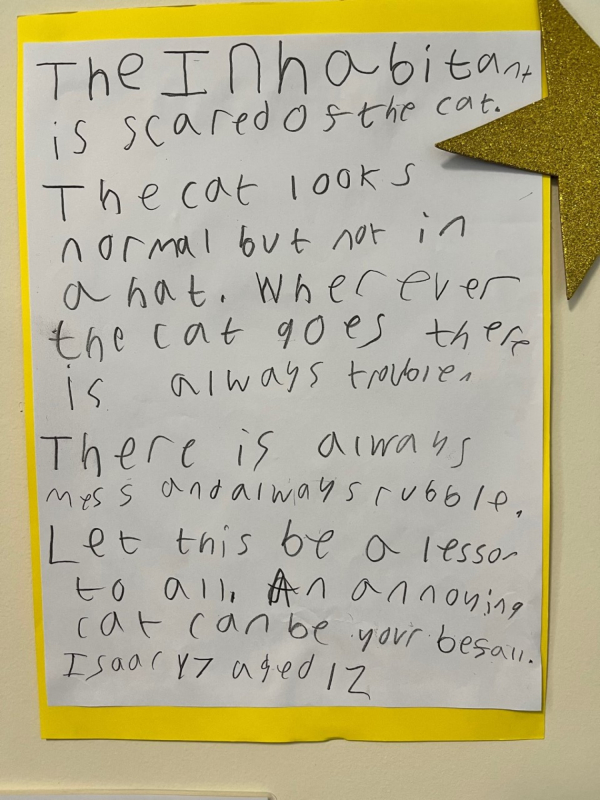 The Inhabitant
is scared of the cat.
The cat looks
normal but not in
a hat. Wherever
the cat goes there
is always trouble.
There is always
mess and always rubble.
Let this be a lesson
to all. An annoying
cat can be your besall.
Isaac Y7 aged 12